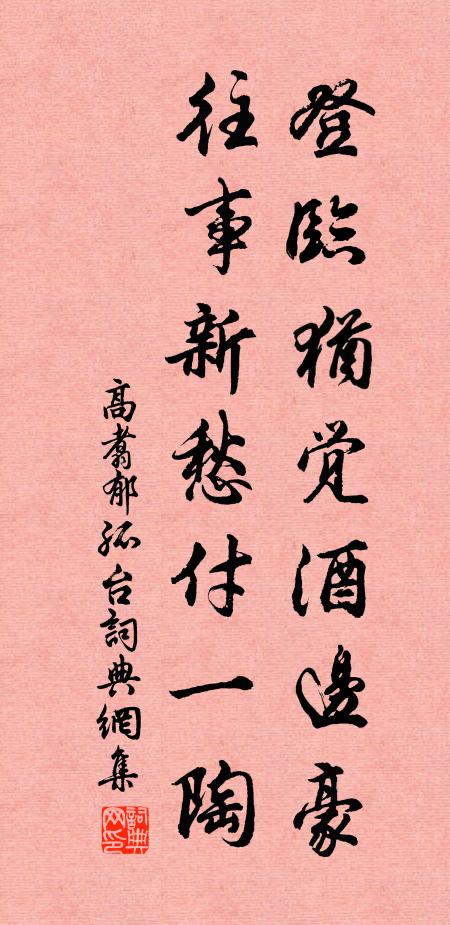 登臨猶覺酒邊豪
往事新愁付一陶
高翥郁孤台詞典網集
詞典网印